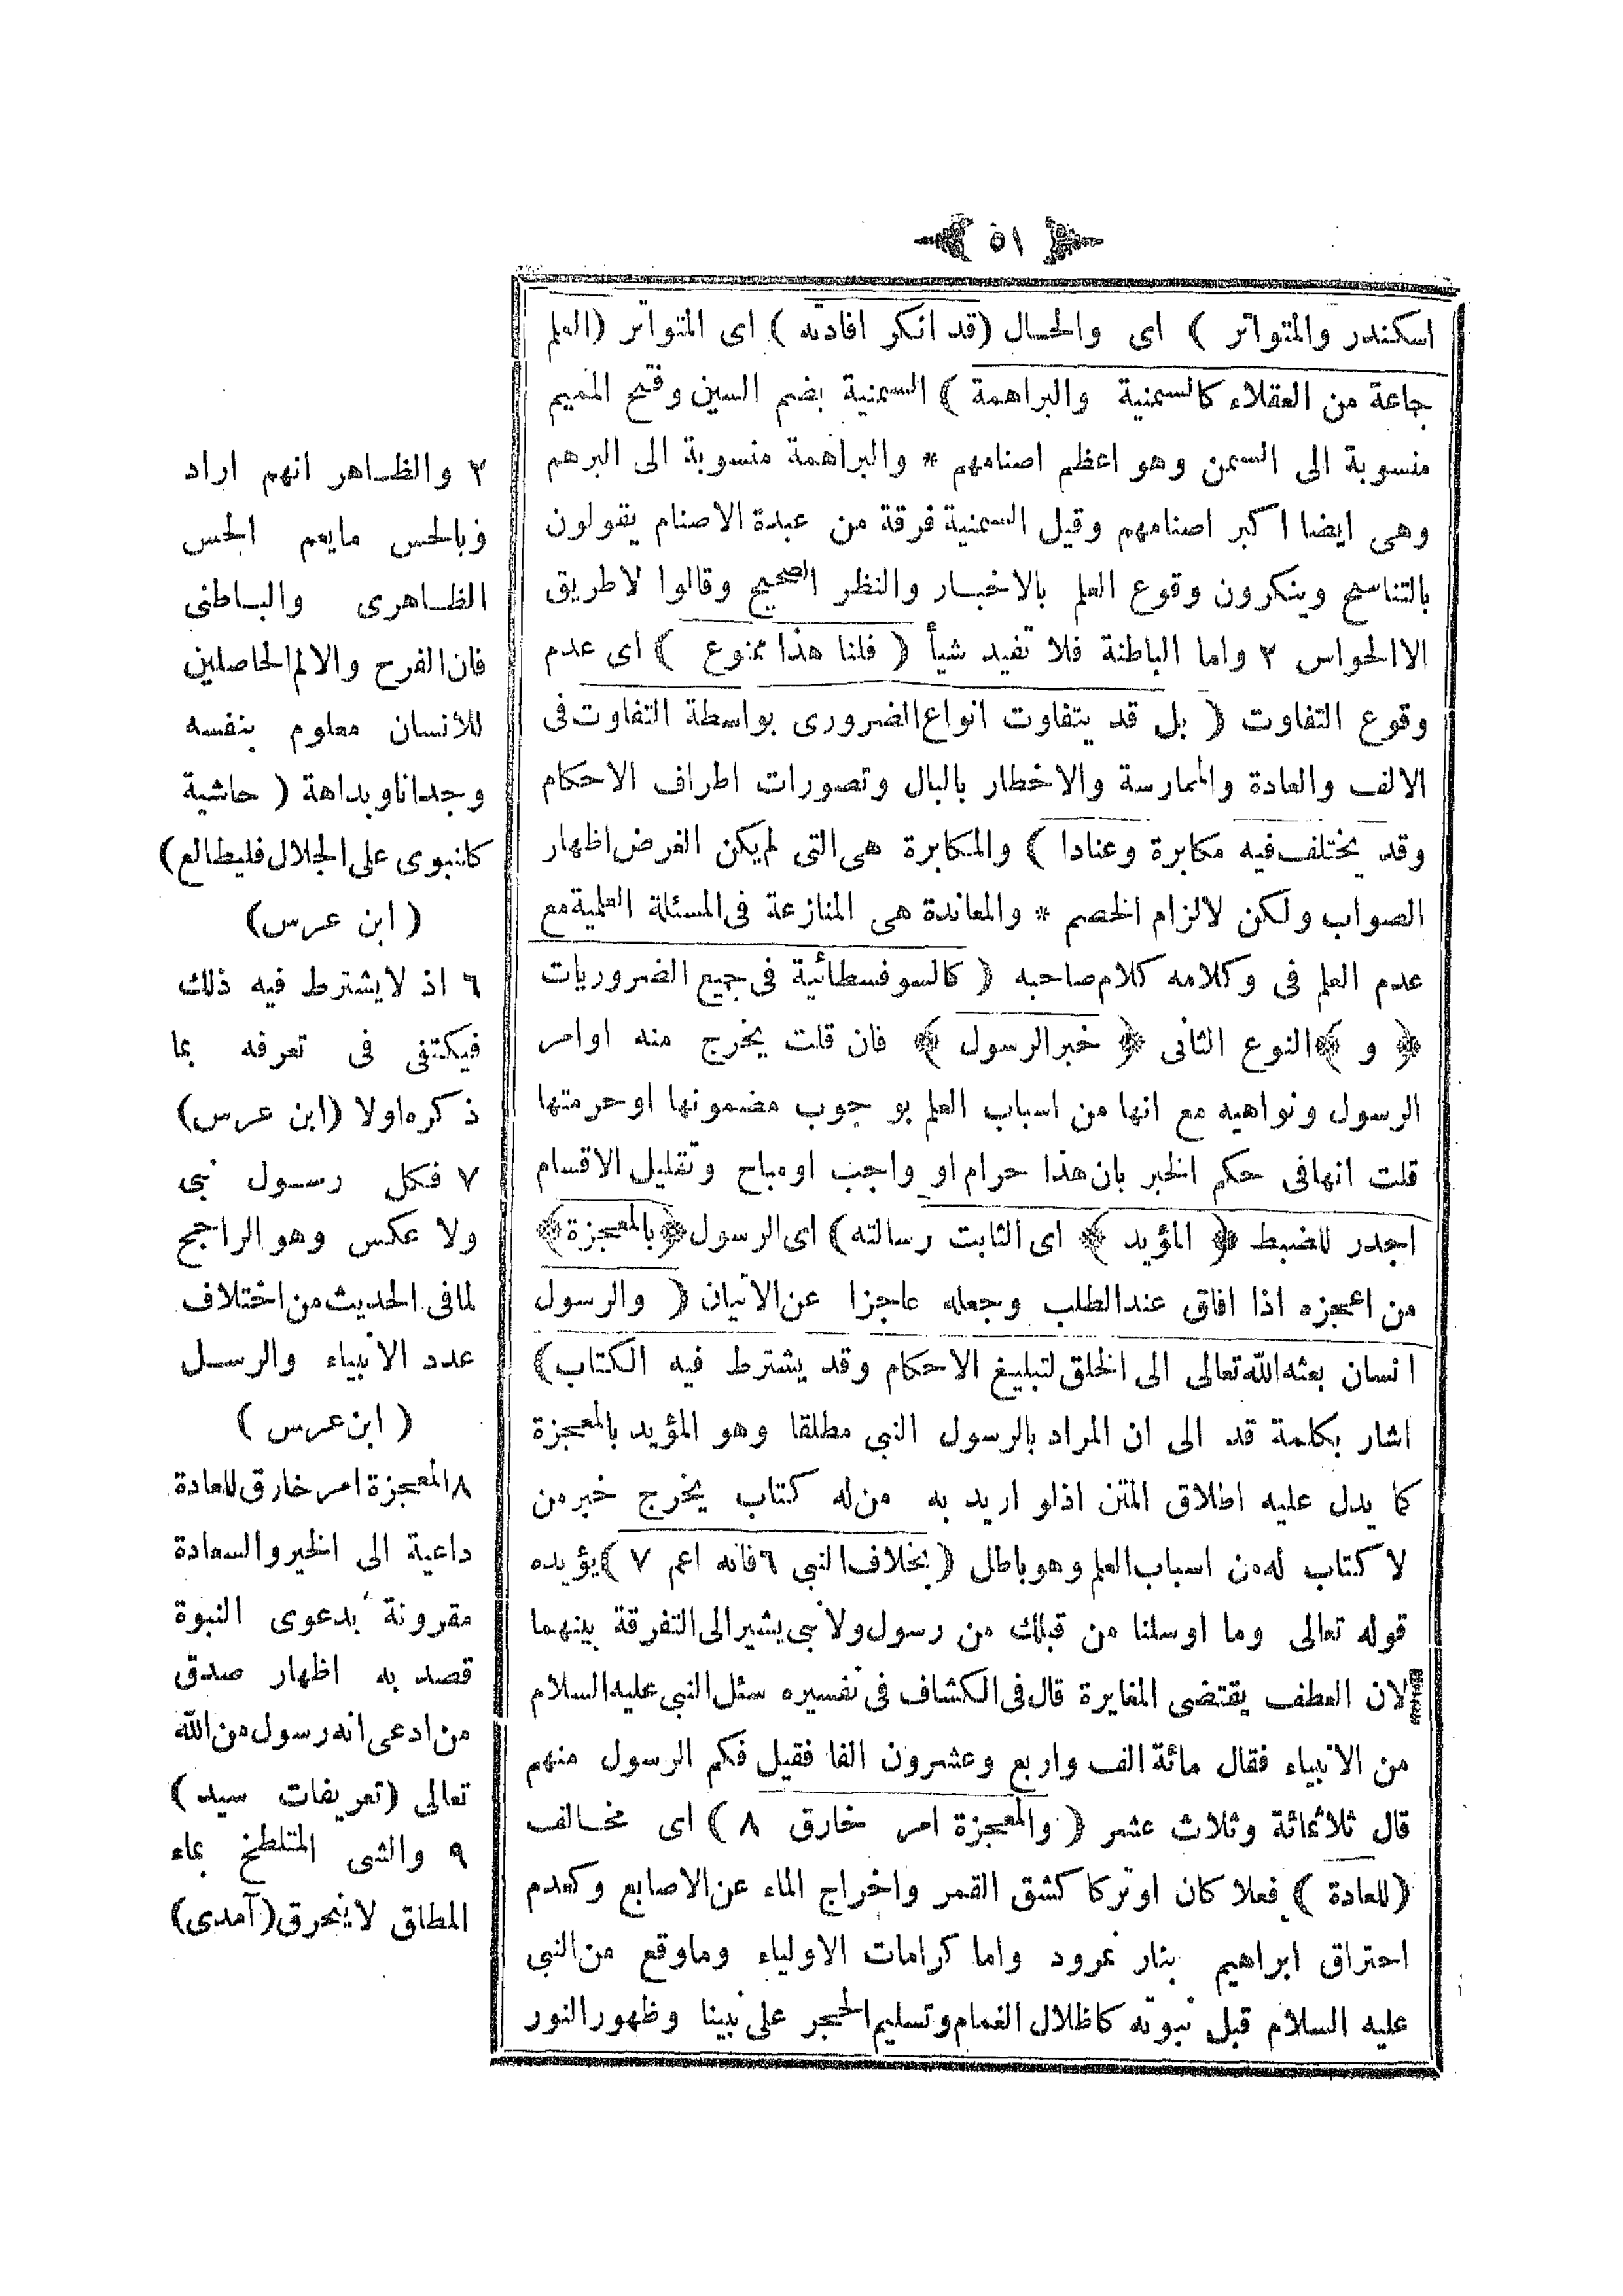 ﴿ ٥١ ﴾
اسكندر والمتواتر ) اى والحال (قد انكر افادته ) اى المتواتر (العلم
جاعة من العقلاء كالسمنية والبراهمة ) السمنية بضم السين وفتح الميم
منسوبة الى السمن وهو اعظم اصنامهم * والبراهمة منسوبة الى البرهم
وهى ايضا اكبر اصنامهم وقيل السمنية فرقة من عبدة الاصنام يقولون
بالتناسخ وينكرون وقوع العلم بالاخبار والنظر الصحيح وقالوا لاطريق
الاالحواس ٢ واما الباطنة فلا تفيد شيأ ( قلنا هذا ممنوع ) اى عدم
وقوع التفاوت ( بل قد يتفاوت انواع الضرورى بواسطة التفاوت فى
الالف والعادة والممارسة والاخطار بالبال وتصورات اطراف الاحكام
وقد يختلف فيه مكابرة وعنادا ) والمكابرة هى التى لم يكن الغرض اظهار
الصواب ولكن لالزام الخصم * والمعاندة هى المنازعة فى المسئلة العلمية مع
عدم العلم فى وكلامه كلام صاحبه ( كالسوفسطائية فى جميع الضروريات
﴿ و ﴾ النوع الثانى ﴿ خبر الرسول ﴾ فان قلت يخرج منه اوامر
الرسول ونواهيه مع انها من اسباب العلم بوجوب مضمونها اوحرمتها
قلت انها فى حكم الخبر بان هذا حرام او واجب اومباح وتقليل الاقسام
اجدر للضبط ﴿ المؤيد ﴾ اى الثابت رسالته ) اى الرسول ﴿ بالمعجزة ﴾
من اعجزه اذا افاق عند الطلب وجعله عاجزا عن الاتيان ( والرسول
انسان بعثه الله تعالى الى الخلق لتبليغ الاحكام وقد يشترط فيه الكتاب )
اشار بكلمة قد الى ان المراد بالرسول النبى مطلقا وهو المؤيد بالمعجزة
كما يدل عليه اطلاق المتن اذلو اريد به من له كتاب يخرج خبر من
لا كتاب له من اسباب العلم وهو باطل ( بخلاف النبى ٦ فانه اعم ٧ ) يؤيده
قوله تعالى وما اوسلنا من قبلك من رسول ولا نبى يشير الى التفرقة بينهما
لان العطف يقتضى المغايرة قال فى الكشاف فى تفسيره سئل النبى عليه السلام
من الانبياء فقال مائة الف واربع وعشرون الفا فقيل فكم الرسول منهم
قال ثلاثمائة وثلاث عشر ( والمعجزة امر خارق ٨ ) اى مخالف
(للعادة ) فعلا كان اوتركا كشق القمر واخراج الماء عن الاصابع وكعدم
احتراق ابراهيم بنار نمرود واما كرامات الاولياء وماوقع من النبى
عليه السلام قبل نبوته كاظلال الغمام وتسليم الحجر على نبينا وظهور النور
٢ والظاهر انهم اراد
وبالحس مايعم الحس
الظاهرى والباطنى
فان الفرح والالم الحاصلين
للأنسان معلوم بنفسه
وجدانا وبداهة ( حاشية
كانبوى على الجلال فليطالع )
( ابن عرس)
٦ اذ لايشترط فيه ذلك
فيكتفى فى تعرفه بما
ذكره اولا (ابن عرس)
٧ فكل رسول نبى
ولا عكس وهو الراجح
لما فى الحديث من اختلاف
عدد الانبياء والرسل
( ابن عرس )
٨ المعجزة امر خارق للعادة
داعية الى الخير والسعادة
مقرونة بدعوى النبوة
قصد به اظهار صدق
من ادعى انه رسول من الله
تعالى (تعريفات سيد )
٩ والشى المتلطخ بماء
المطلق لايحرق (آمدى)